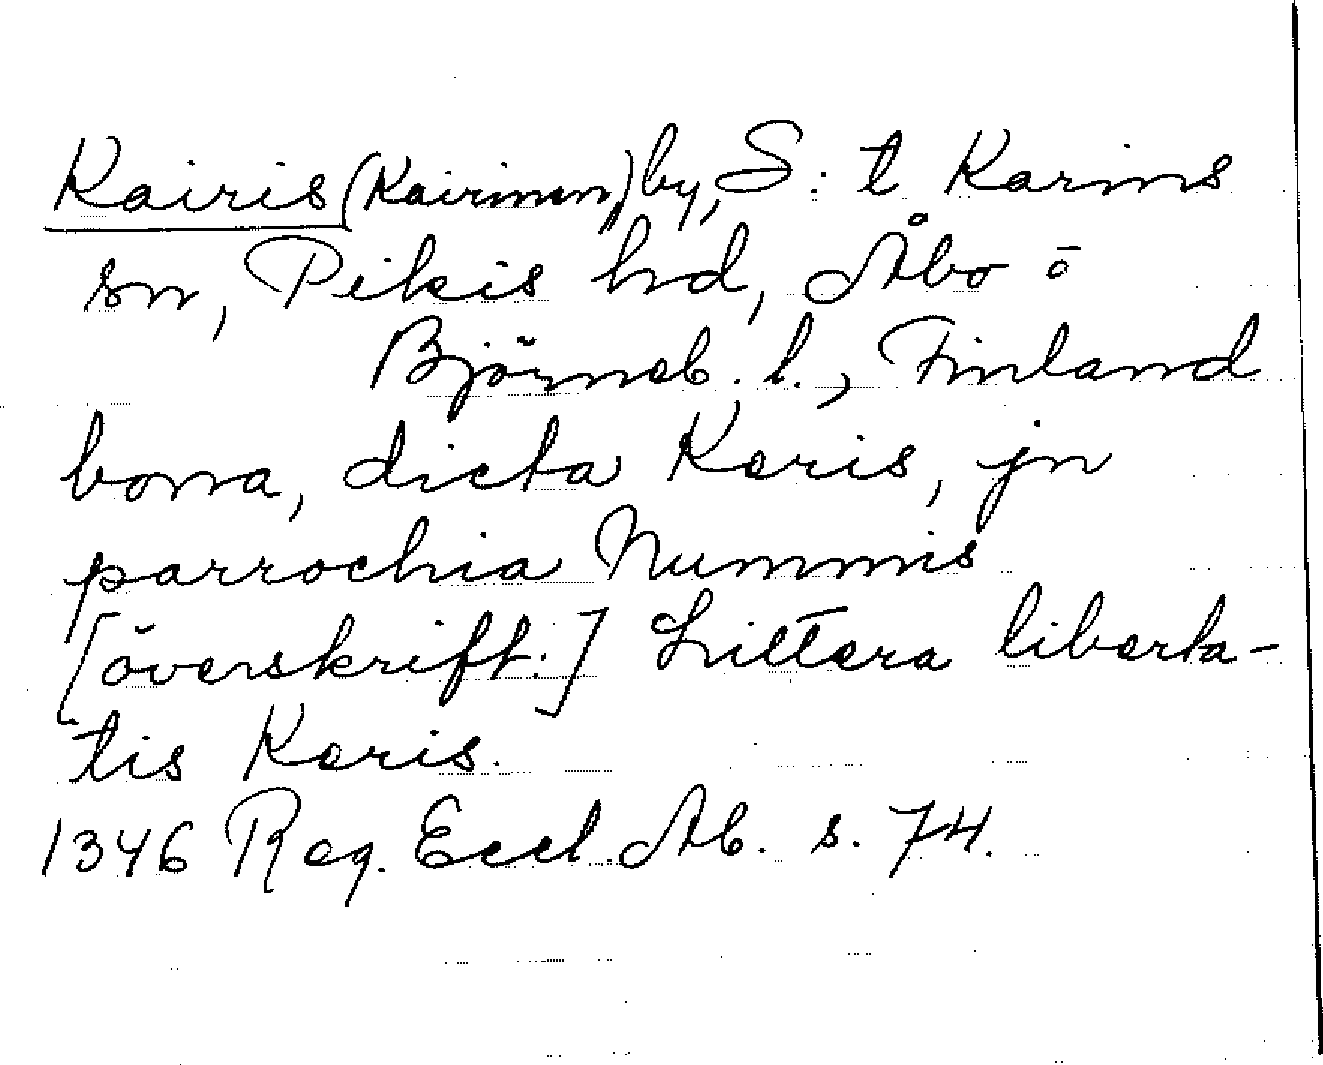 Kairis (Kairinen) by, S:t Karins
sn, Pikis hd, Åbo o
Björneb. l., Finland
bona, dicta Karis, jn
parrochia Nummis
[överskrift:] Littera liberta-
tis Karis.
1346 Reg. Eccl. Ab. s. 74.